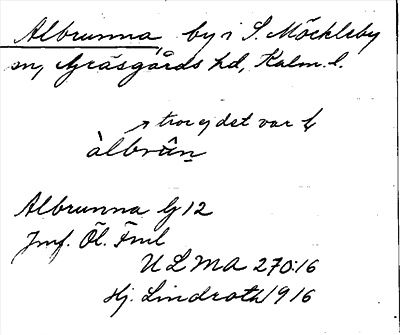 Albrunna, by i S. Möckleby
sn, Gräsgårds hd, Kalm. l.
tror ej det var
àlbrân
Albrunna G 12
Jmf. Öl. Fml
ULMA 270:16
Hj. Lindroth 1916